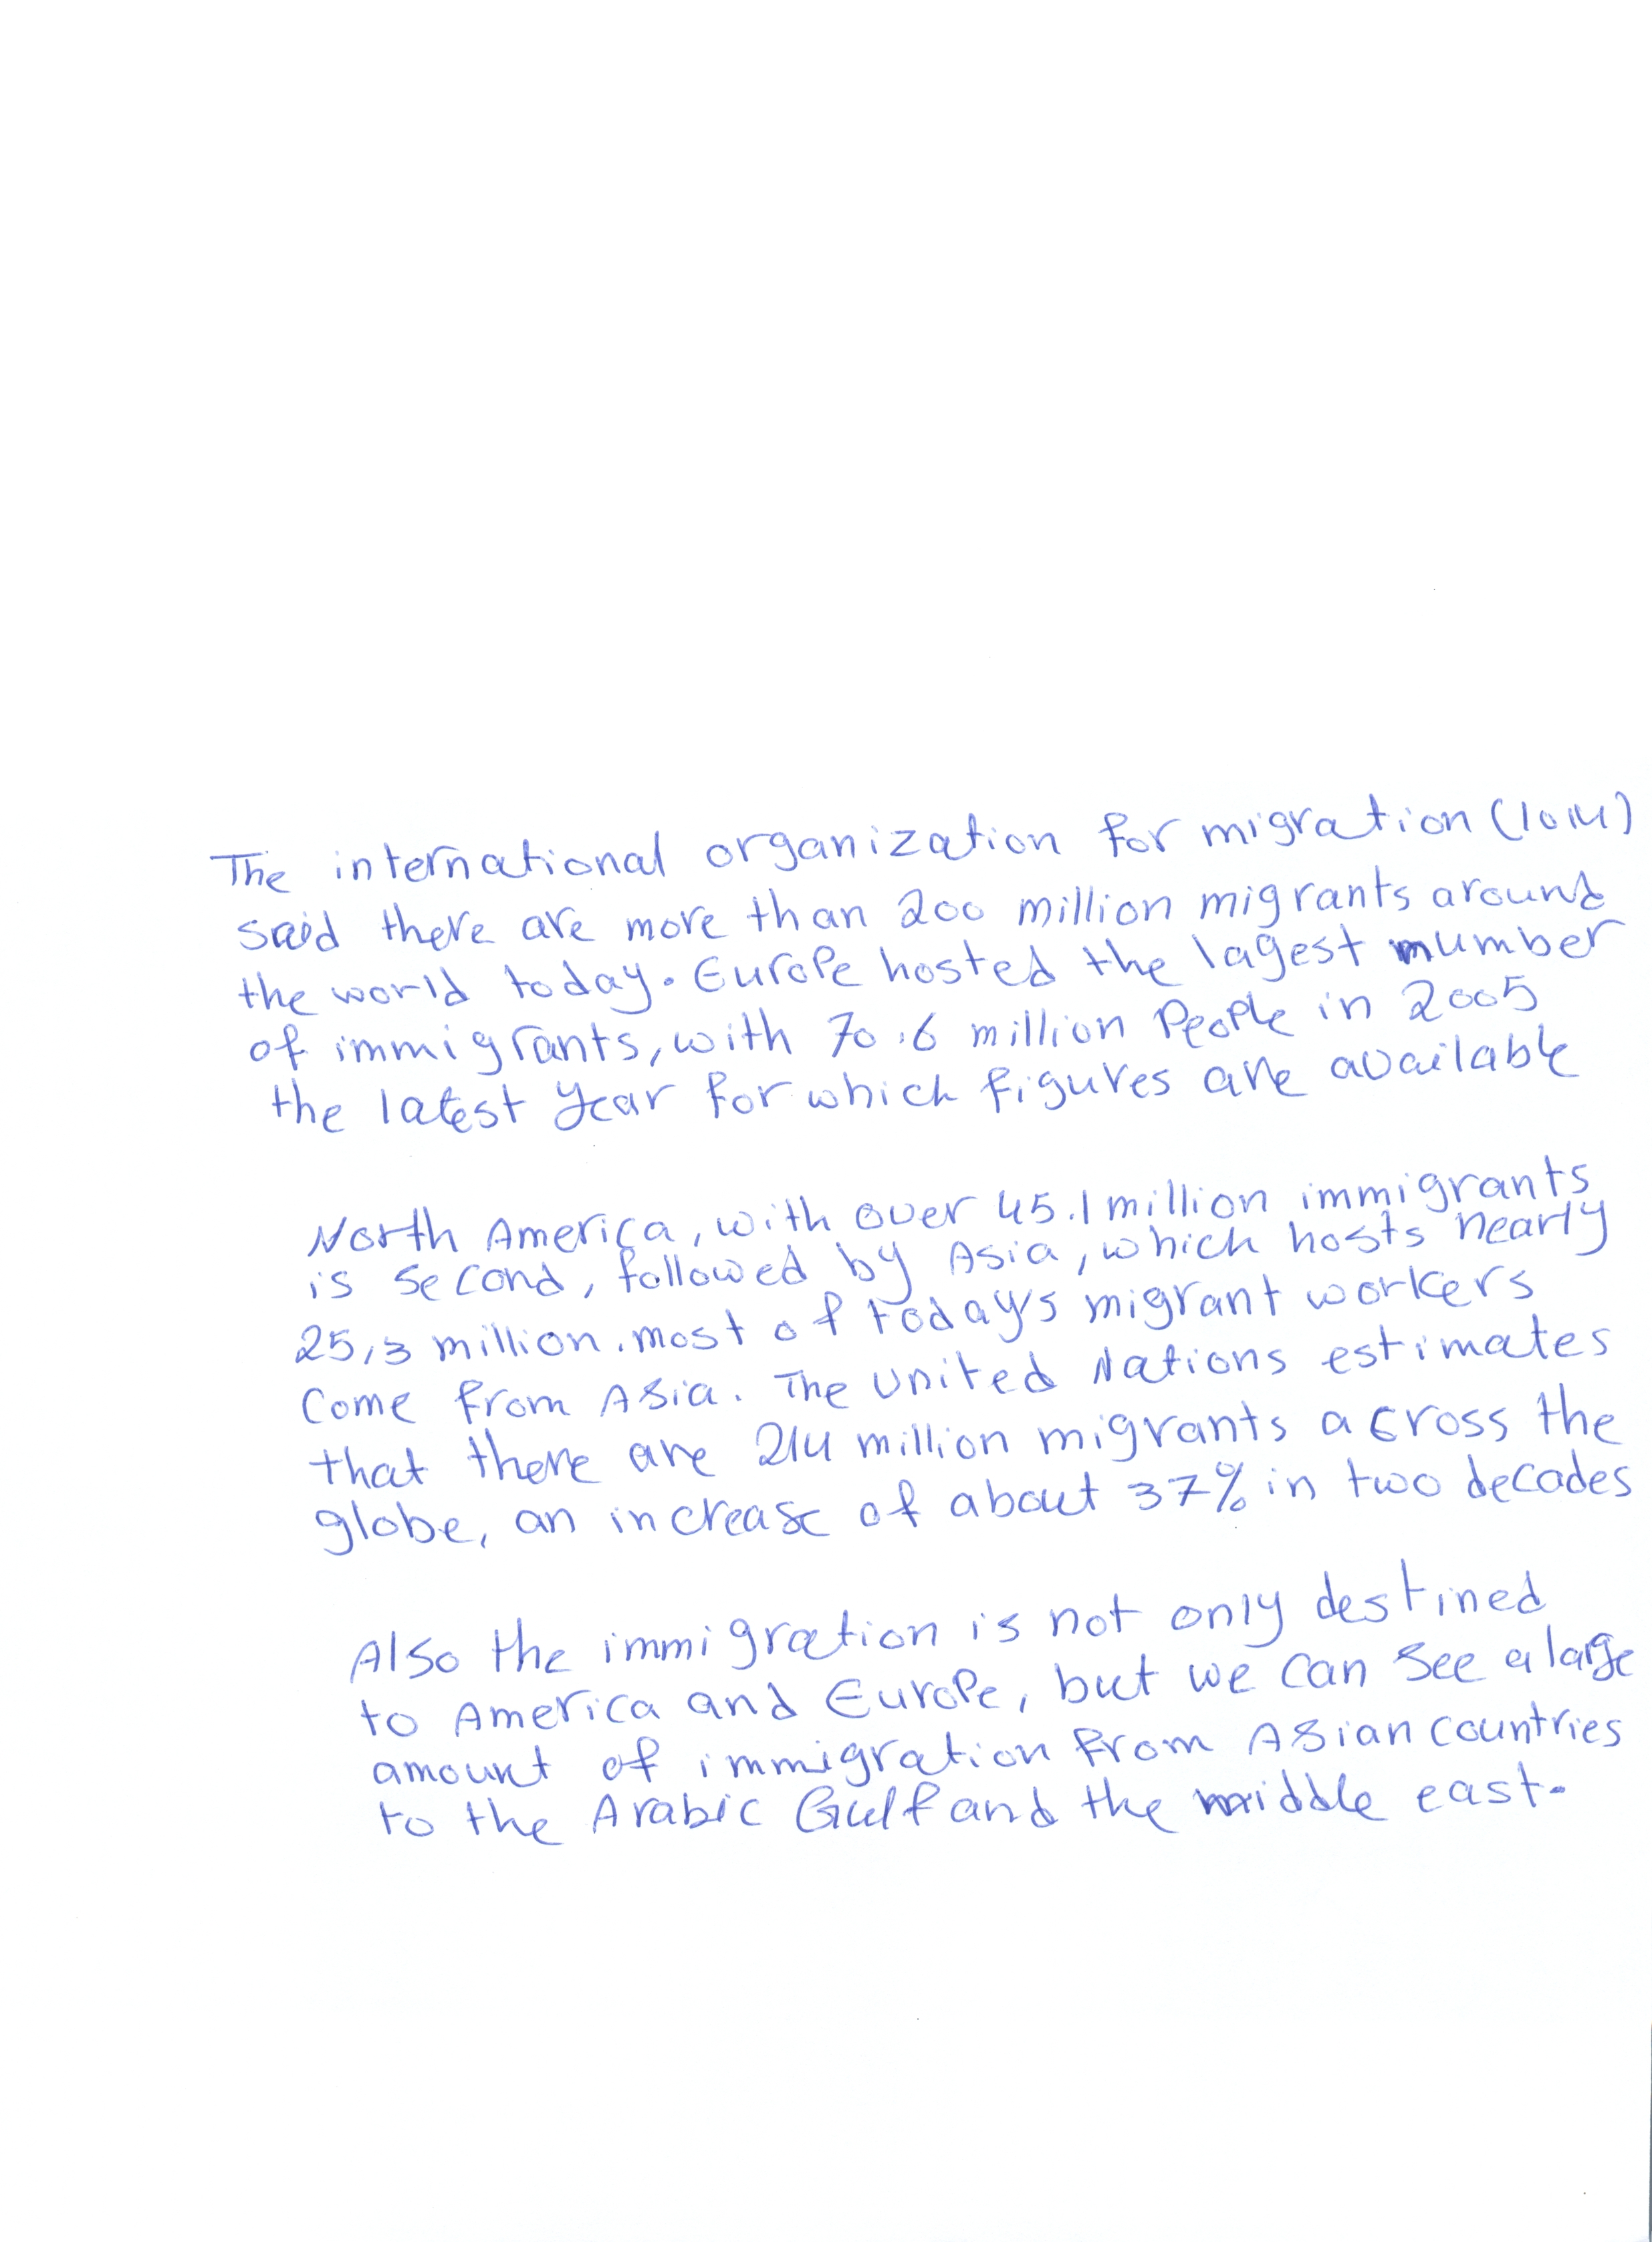 The international organization for migration (IOM)
said there are more than 200 million migrants around
the world today. Europe hosted the lagest number
of immigrants, with 70.6 million People in 2005
the latest year for which figures are available
North America, with over 45.1 million immigrants
is second, followed by Asia, which hosts nearly
25,3 million. most of today's migrant workers
Come from Asia. The United Nations estimates
that there are 214 million migrants across the
globe, an increase of about 37% in two decades
Also the immigration is not only destined
to America and Europe, but we can see a large
amount of immigration from Asian countries
to the Arabic Gulf and the middle east.